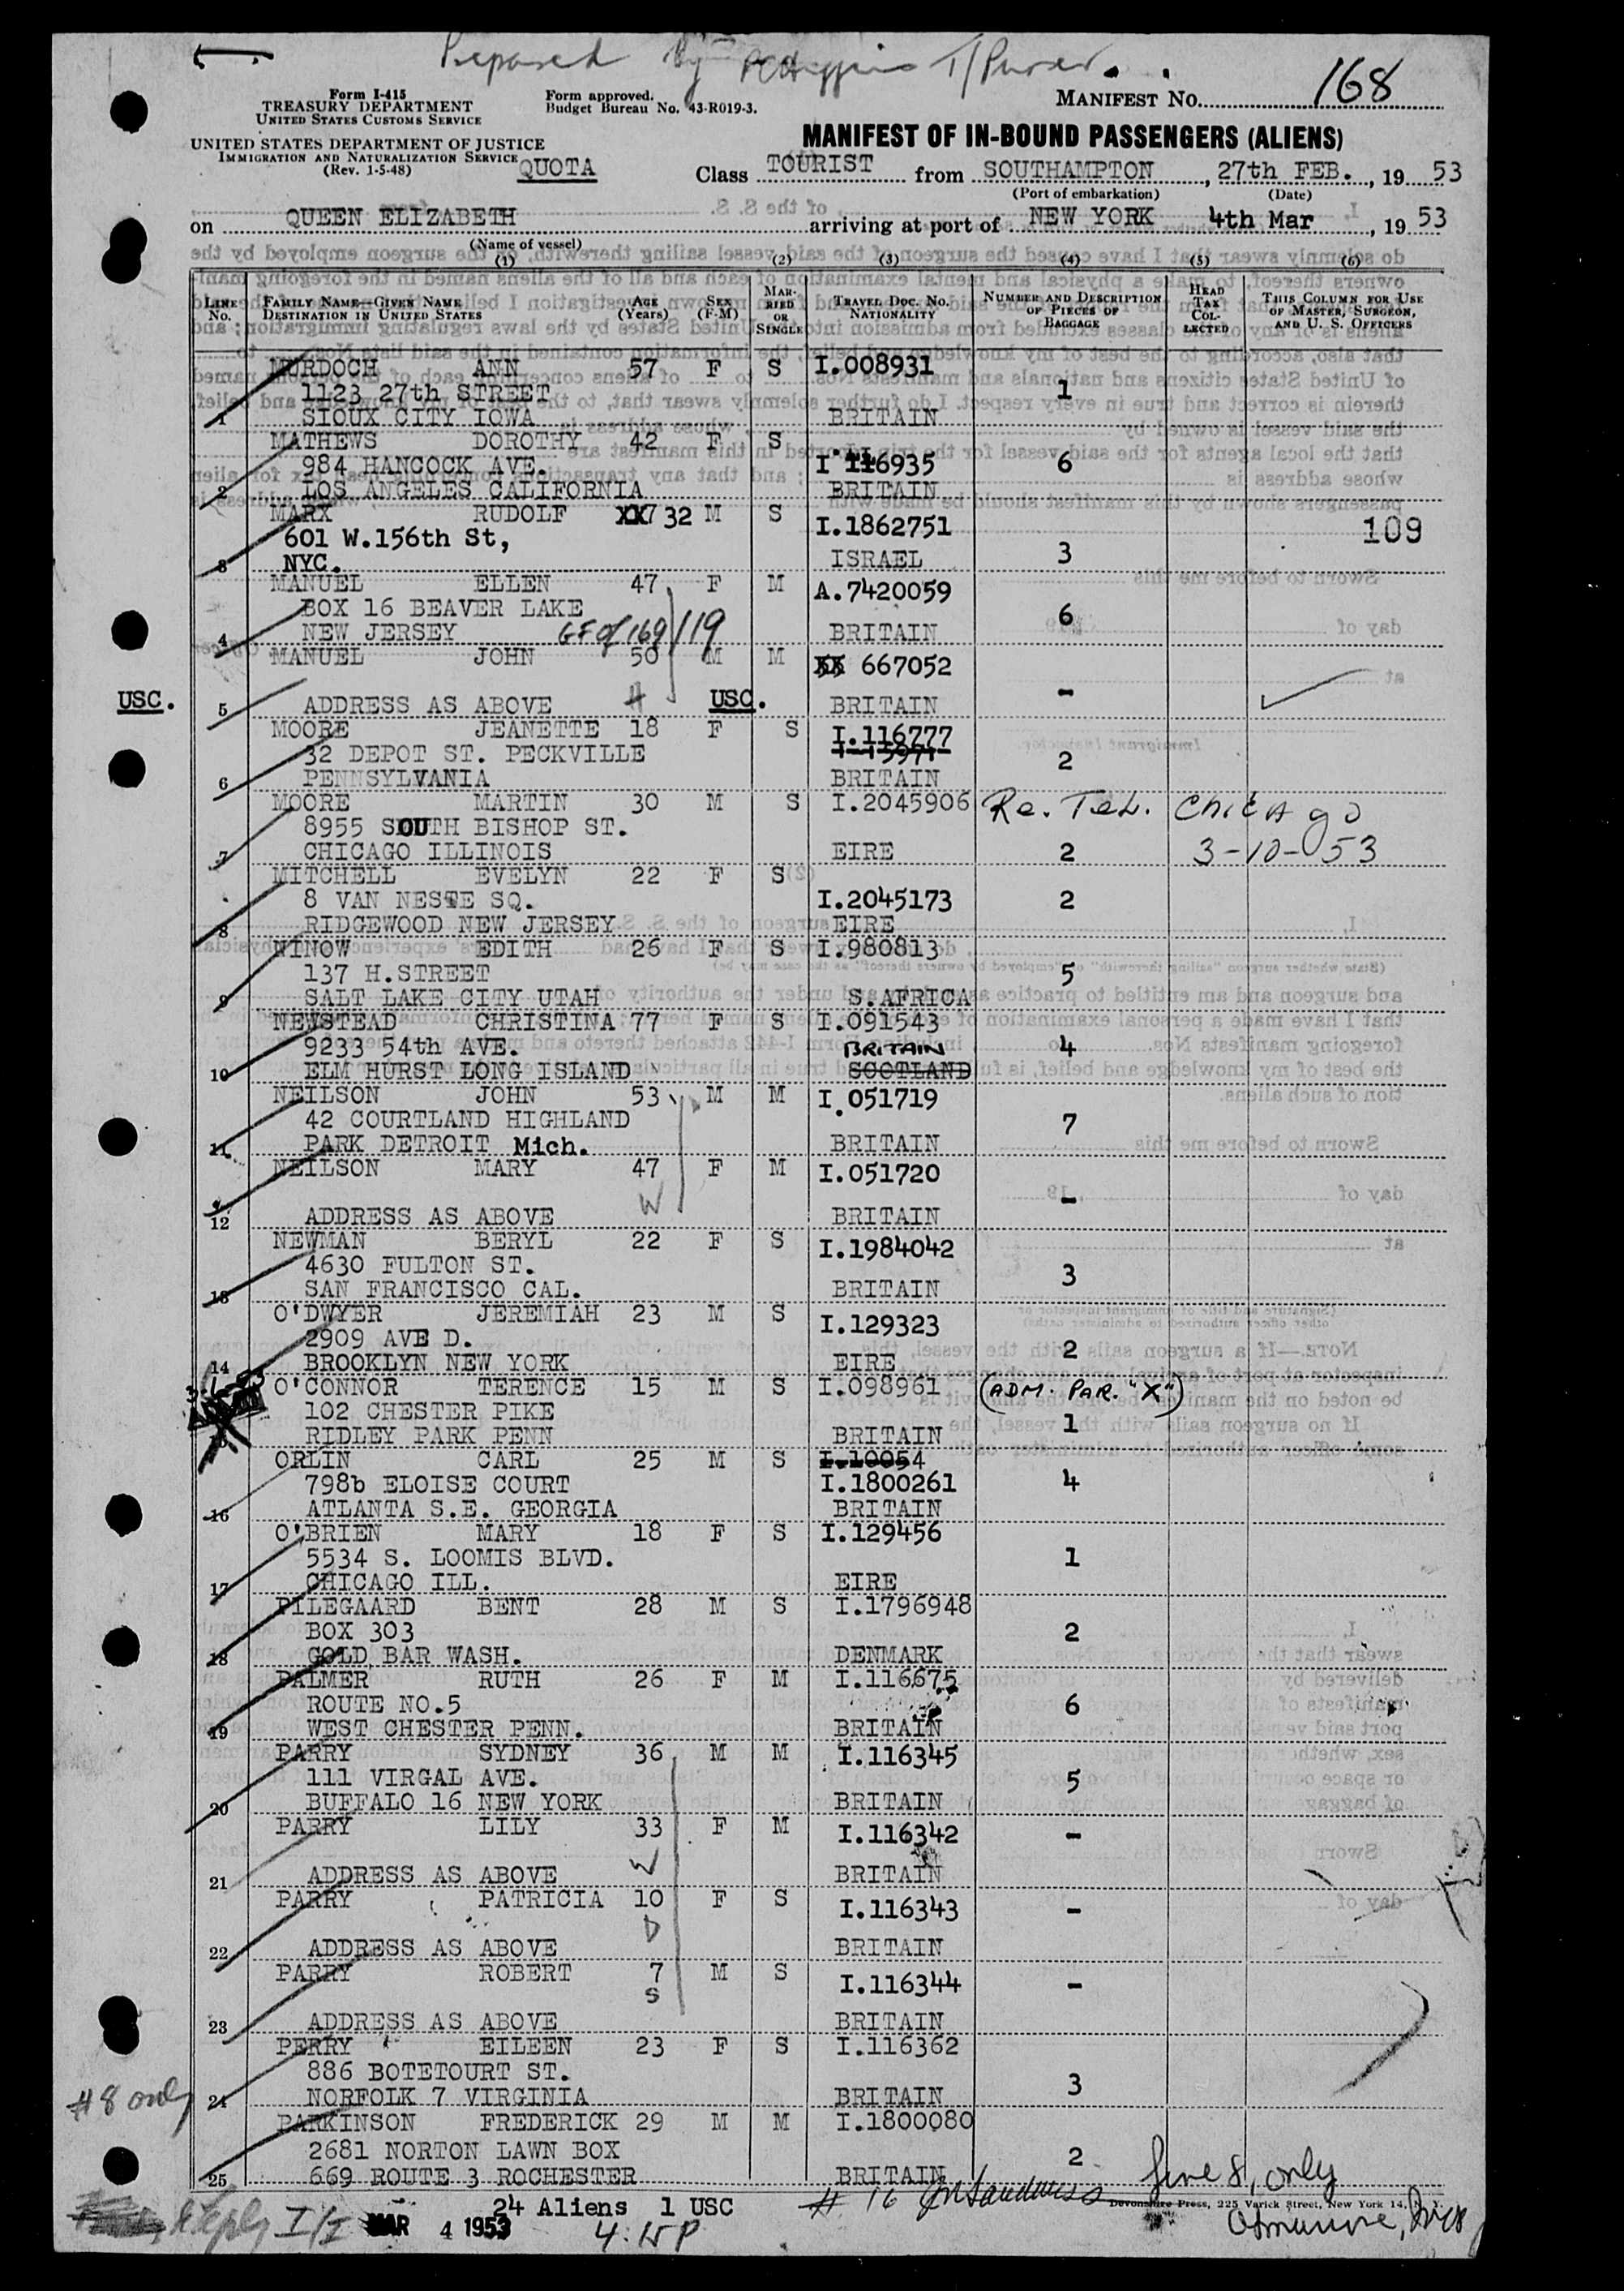 Prepared By T/Purser.
168
Form I-415
TREASURY DEPARTMENT
UNITED STATES CUSTOMS SERVICE
Form approved.
Budget Bureau No. 43-R019-3.
MANIFEST No.
UNITED STATES DEPARTMENT OF JUSTICE
IMMIGRATION AND NATURALIZATION SERVICE
(Rev. 1-5-48)
QUOTA
MANIFEST OF IN-BOUND PASSENGERS (ALIENS)
Class TOURIST from SOUTHAMPTON, 27th FEB., 19 53
(Port of embarkation) (Date)
on QUEEN ELIZABETH arriving at port of NEW YORK 4th Mar, 19 53
(Name of vessel)
(1) (2) (3) (4) (5) (6)
LINE No. FAMILY NAME—GIVEN NAME DESTINATION IN UNITED STATES AGE (Years) SEX (F-M) MARRIED OR SINGLE TRAVEL DOC. No. NATIONALITY NUMBER AND DESCRIPTION OF PIECES OF BAGGAGE HEAD TAX COLLECTED THIS COLUMN FOR USE OF MASTER, SURGEON, AND U. S. OFFICERS
MURDOCH ANN 57 F S I.008931
1123 27th STREET 1
1 SIOUX CITY IOWA BRITAIN
MATHEWS DOROTHY 42 F S
984 HANCOCK AVE. I 116935 6
2 LOS ANGELES CALIFORNIA BRITAIN
MARX RUDOLF XX7 32 M S I.1862751 109
601 W.156th St,
3 NYC. ISRAEL 3
MANUEL ELLEN 47 F M A.7420059
BOX 16 BEAVER LAKE 6
4 NEW JERSEY GF of 169/19 BRITAIN
MANUEL JOHN 50 M M XX 667052
USC. 5 ADDRESS AS ABOVE H USC. BRITAIN -
MOORE JEANETTE 18 F S I.116777
32 DEPOT ST. PECKVILLE 2
6 PENNSYLVANIA BRITAIN
MOORE MARTIN 30 M S I.2045906 Re. Tel. Chicago
8955 SOUTH BISHOP ST.
7 CHICAGO ILLINOIS EIRE 2 3-10-53
MITCHELL EVELYN 22 F S
8 VAN NESTE SQ. I.2045173 2
8 RIDGEWOOD NEW JERSEY EIRE
NINOW EDITH 26 F S I.980813
137 H.STREET 5
9 SALT LAKE CITY UTAH S.AFRICA
NEWSTEAD CHRISTINA 77 F S I.091543
9233 54th AVE. BRITAIN 4
10 ELM HURST LONG ISLAND SCOTLAND
NEILSON JOHN 53 M M I.051719
42 COURTLAND HIGHLAND 7
11 PARK DETROIT Mich. BRITAIN
NEILSON MARY 47 F M I.051720
W -
12 ADDRESS AS ABOVE BRITAIN
NEWMAN BERYL 22 F S I.1984042
4630 FULTON ST. 3
13 SAN FRANCISCO CAL. BRITAIN
O'DWYER JEREMIAH 23 M S I.129323
2909 AVE D. 2
14 BROOKLYN NEW YORK EIRE
O'CONNOR TERENCE 15 M S I.098961 (ADM. PAR. "X")
102 CHESTER PIKE 1
15 RIDLEY PARK PENN BRITAIN
ORLIN CARL 25 M S I.10054
798b ELOISE COURT I.1800261 4
16 ATLANTA S.E. GEORGIA BRITAIN
O'BRIEN MARY 18 F S I.129456
5534 S. LOOMIS BLVD. 1
17 CHICAGO ILL. EIRE
PILEGAARD BENT 28 M S I.1796948
BOX 303 2
18 GOLD BAR WASH. DENMARK
PALMER RUTH 26 F M I.116675
ROUTE NO.5 6
19 WEST CHESTER PENN. BRITAIN
PARRY SYDNEY 36 M M I.116345
111 VIRGAL AVE. 5
20 BUFFALO 16 NEW YORK BRITAIN
PARRY LILY 33 F M I.116342 -
W
21 ADDRESS AS ABOVE BRITAIN
PARRY PATRICIA 10 F S I.116343 -
D
22 ADDRESS AS ABOVE BRITAIN
PARRY ROBERT 7 M S I.116344 -
S
23 ADDRESS AS ABOVE BRITAIN
PERRY EILEEN 23 F S I.116362
886 BOTETOURT ST. 3
#8 only 24 NORFOLK 7 VIRGINIA BRITAIN
PARKINSON FREDERICK 29 M M I.1800080
2681 NORTON LAWN BOX 2
25 669 ROUTE 3 ROCHESTER BRITAIN
line 8, only
24 Aliens 1 USC # 16
Devonshire Press, 225 Varick Street, New York 14, N. Y.
I/I MAR 4 1953 4:15 P